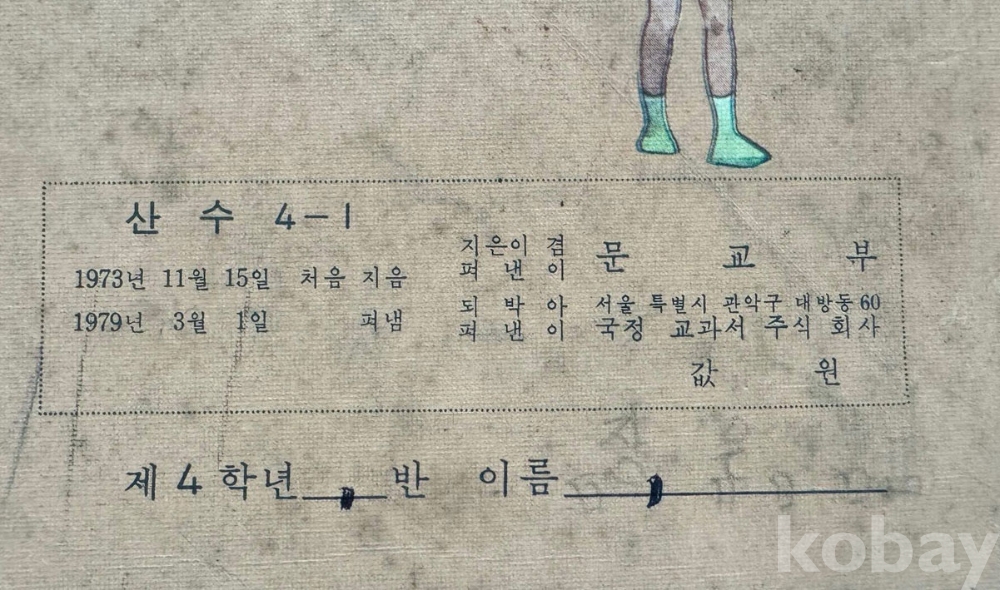 산 수 4-1
1973년 11월 15일 처음 지음
1979년 3월 1일 펴냄
지은이 겸
펴 낸 이
문 교 부
되 박 아
펴 낸 이
서울 특별시 관악구 대방동 60
국정 교과서 주식 회사
값 원
제 4 학년 반 이름
kobay